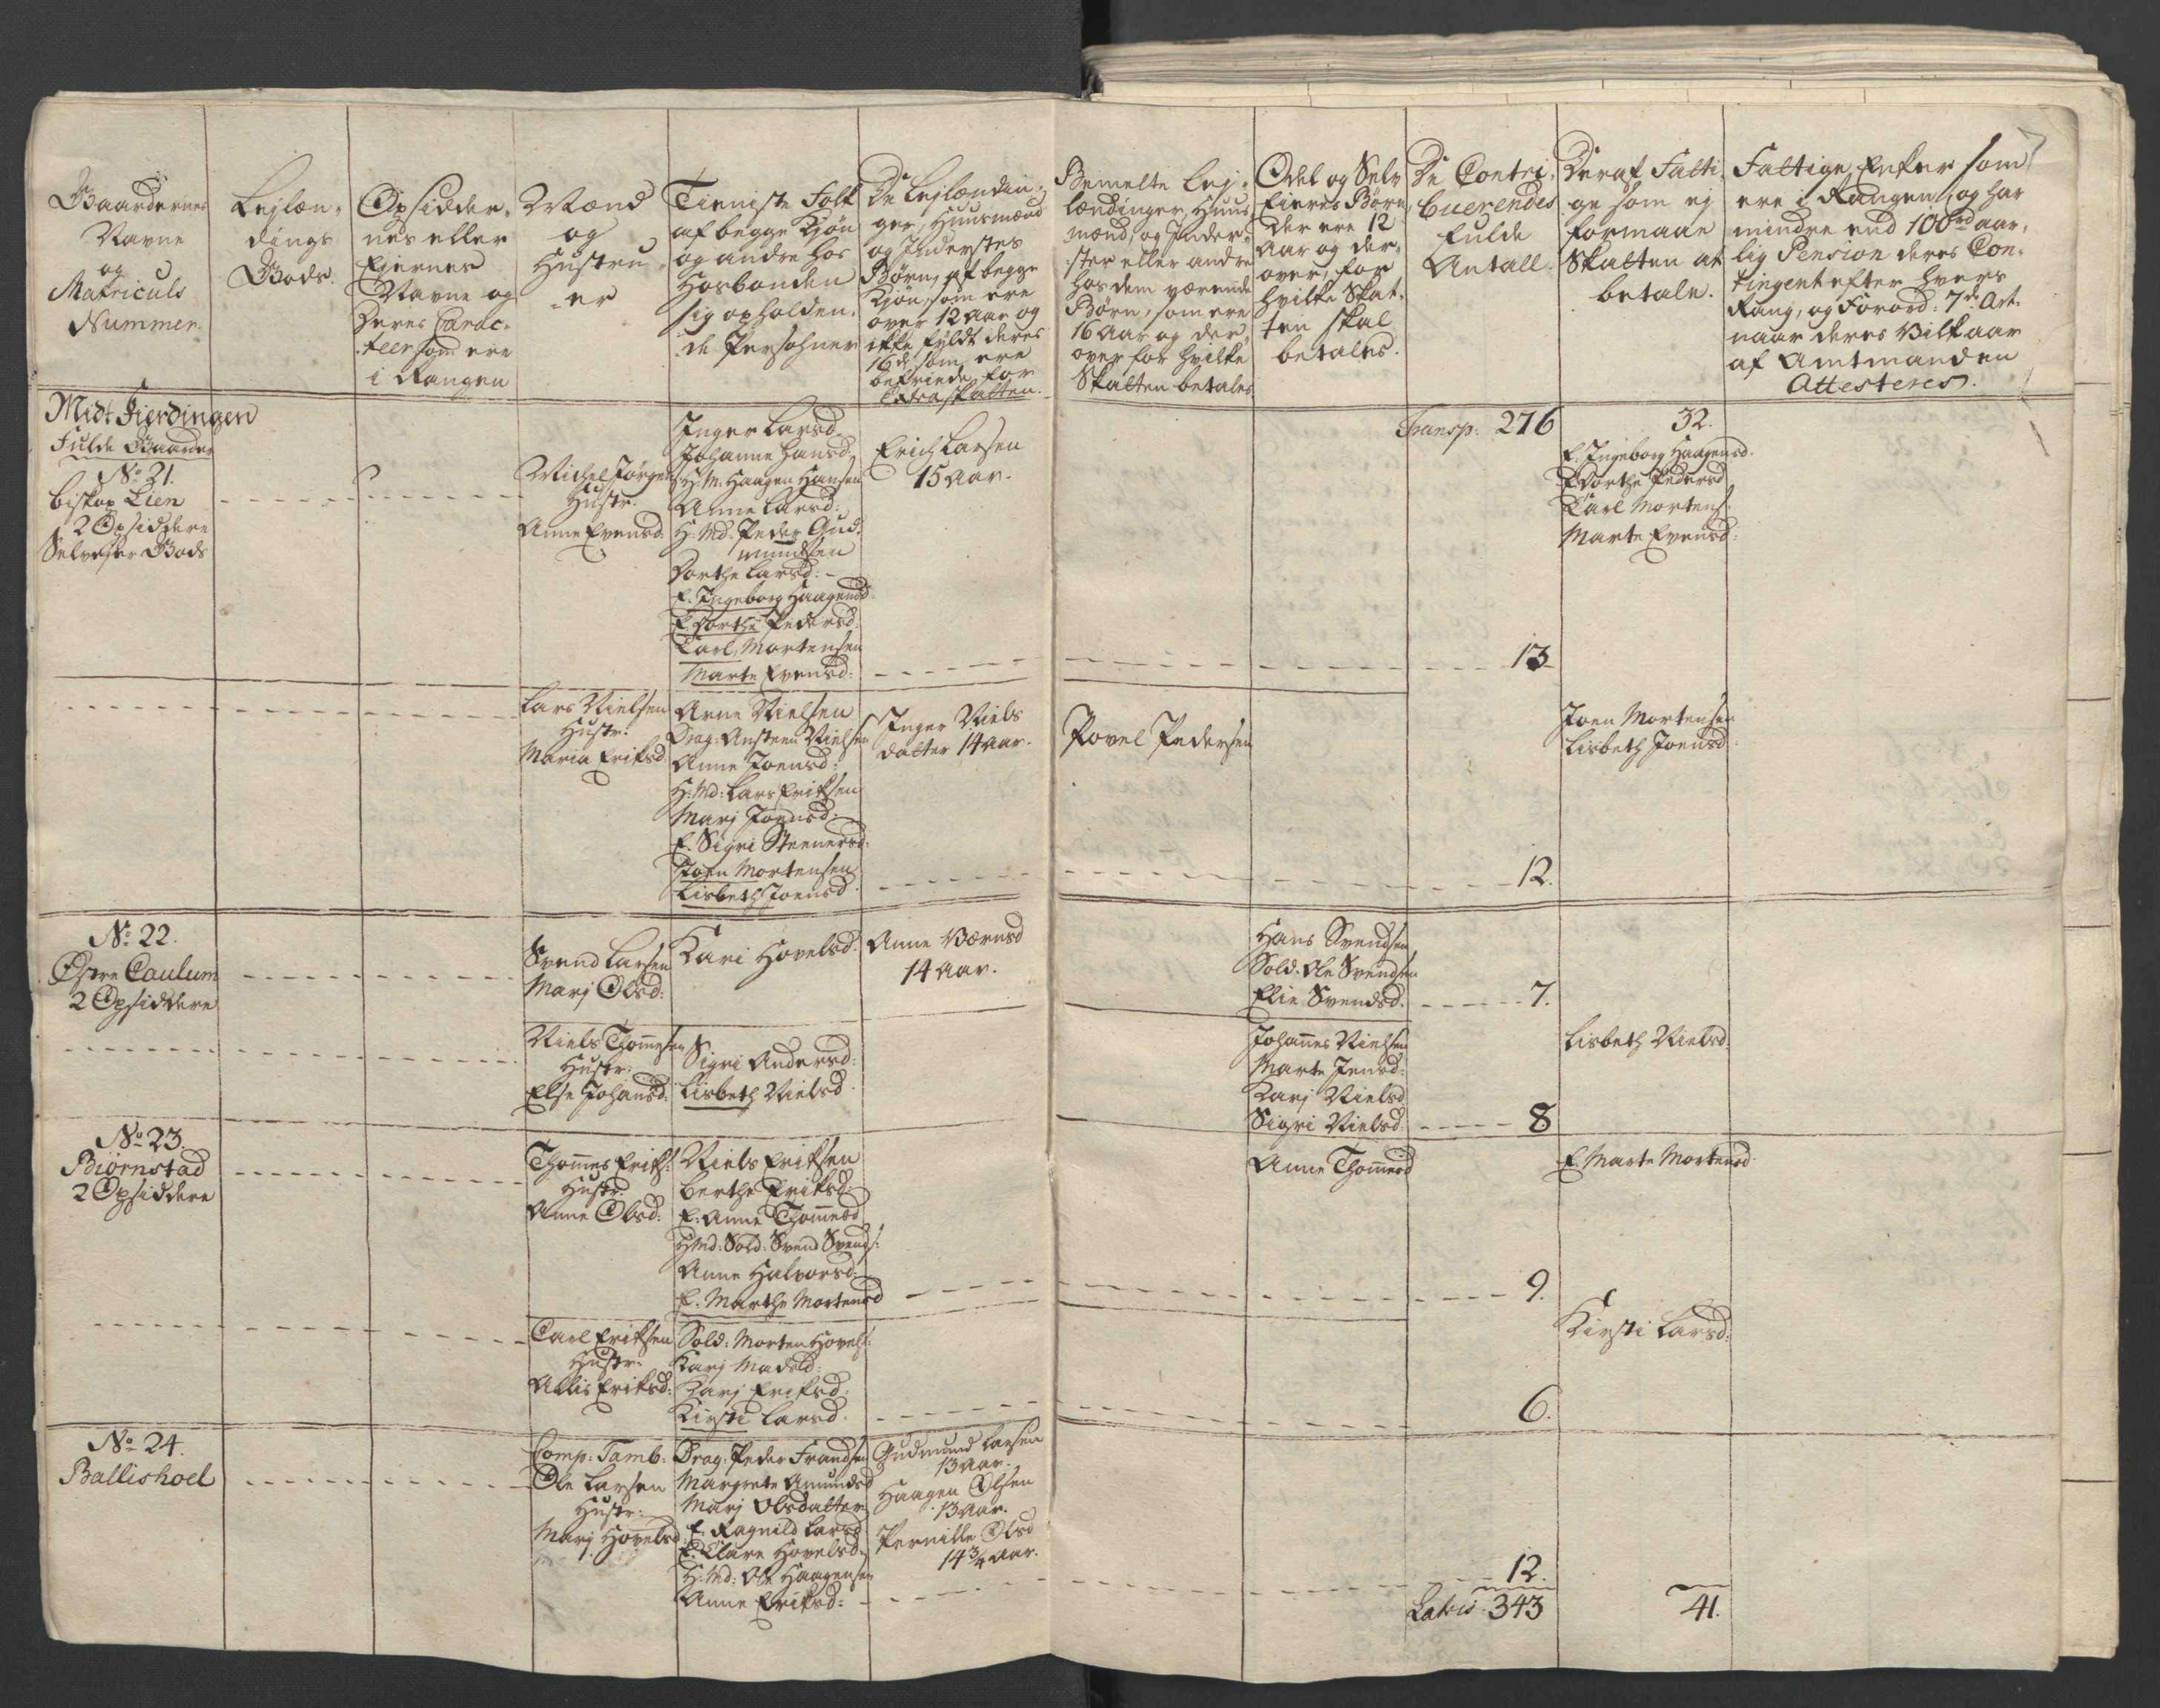 Gaardernes
Navne
og
Matriculs
Nummer.
Lejlæn-
dings
Gods.
Opsidder-
nes eller
Ejernes
Navne og
Deres Carac-
teer som ere
i Rangen
Mænd
og
Hustru
-er
Tieniste Folk
af begge Kjøn
og andre hos
Hosbonden
sig opholden-
de Persohner
De Lejlændin-
ger, Huusmænd
og Inderstes
Børn, af begge
Kjøn, som ere
over 12 Aar og
ikke fyldt deres
16de, som ere
befriede for
Extraskatten.
Bemelte Lej-
lændinger, Huus-
mænd, og Inder-
ster eller andre
hos dem værende
Børn, som ere
16 Aar og der-
over for hvilke
Skatten betales
Odel og Selv
Eieres Børn
der ere 12
Aar og der-
over, for
hvilke Skat-
ten skal
betales.
De Contri-
buerendes
fulde
Antall.
Deraf Fatti-
ge som ej
formaae
Skatten at
betale.
Fattige Enker som
ere i Rangen, og har
mindre end 100 rd aar-
lig Pension deres Con-
tingent efter hvers
Rang, og Forord: 7de Art.
naar deres Vilkaar
af Amtmanden
Attesteres.
Midt Fierdingen
Fulde Gaarder
No 21.
Biskop Lien
2 Opsiddere
Selvejer Gods
Michel Jørgens
Hustr.
Anne Evensd.
Inger Larsd.
Johanne Hansd.
H. M. Haagen Hansen
Anne Larsd:
H. Md. Peder Gud-
mundsen
Dorthe Larsd:
E. Ingeborg Haagensd
E. Dorthe Pedersd:
Carl Mortensen
Marte Evensd:
Erich Larsen
15 Aar.
Transp: 276
13
32.
E. Ingeborg Haagensd.
E. Dorthe Pedersd
Carl Mortens.
Marte Evensd:
Lars Nielsen
Hustr:
Maria Eriksd
Arne Nielsen
Drag: Ansteen Nielsen
Anne Joensd:
H: Md: Lars Eriksen
Marj Joensd:
E. Sigri Steenersd:
Joen Mortensen
Lisbeth Joensd
Inger Niels
datter 14 Aar.
Povel Pedersen
12.
Joen Mortensen
Lisbeth Joensd
No 22.
Østre Caulum
2 Opsiddere
Svend Larsen
Marj Olsd:
Kari Hovelsd.
Anne Bærnsd
14 Aar.
Hans Svendsen
Sold. Ole Svendsen
Elie Svendsd.
7.
Niels Thommesen
Hustr:
Else Johansd:
Sigri Andersd:
Lisbeth Nielsd
Johannes Nielsen
Marte Jensd:
Karj Nielsd
Sigri Nielsd.
8
Lisbeth Nielsd.
No 23.
Biørnstad
2 Opsiddere
Thommes Eriks:
Hustr.
Anne Olsd:
Niels Eriksen
Berthe Eriksd:
E: Anne Thommesd
HMd: Sold: Svend Svends:
Anne Halvorsd:
E. Marthe Mortensd
Anne Thommesd
9.
E. Marte Mortensd
Carl Eriksen
Hustr:
Allis Eriksd:
Sold: Morten Hovels:
Karj Madsd:
Karj Eriksd:
Kirsti Larsd.
6.
Kirsti Larsd:
No 24.
Ballishoel
Comp: Tamb:
Ole Larsen
Hustr:
Marj Hovelsd
Drag: Peder Frandsen
Margrete Amundsd
Marj Olsdatter
E. Ragnild Larsd
E. Clare Hovelsd:
H: Md: Ole Haagensen
Anne Eriksd:
Gudmund Larsen
13 Aar.
Haagen Olsen
13 Aar.
Pernille Olsd
14 3/4 Aar.
12.
Latris 343
41.